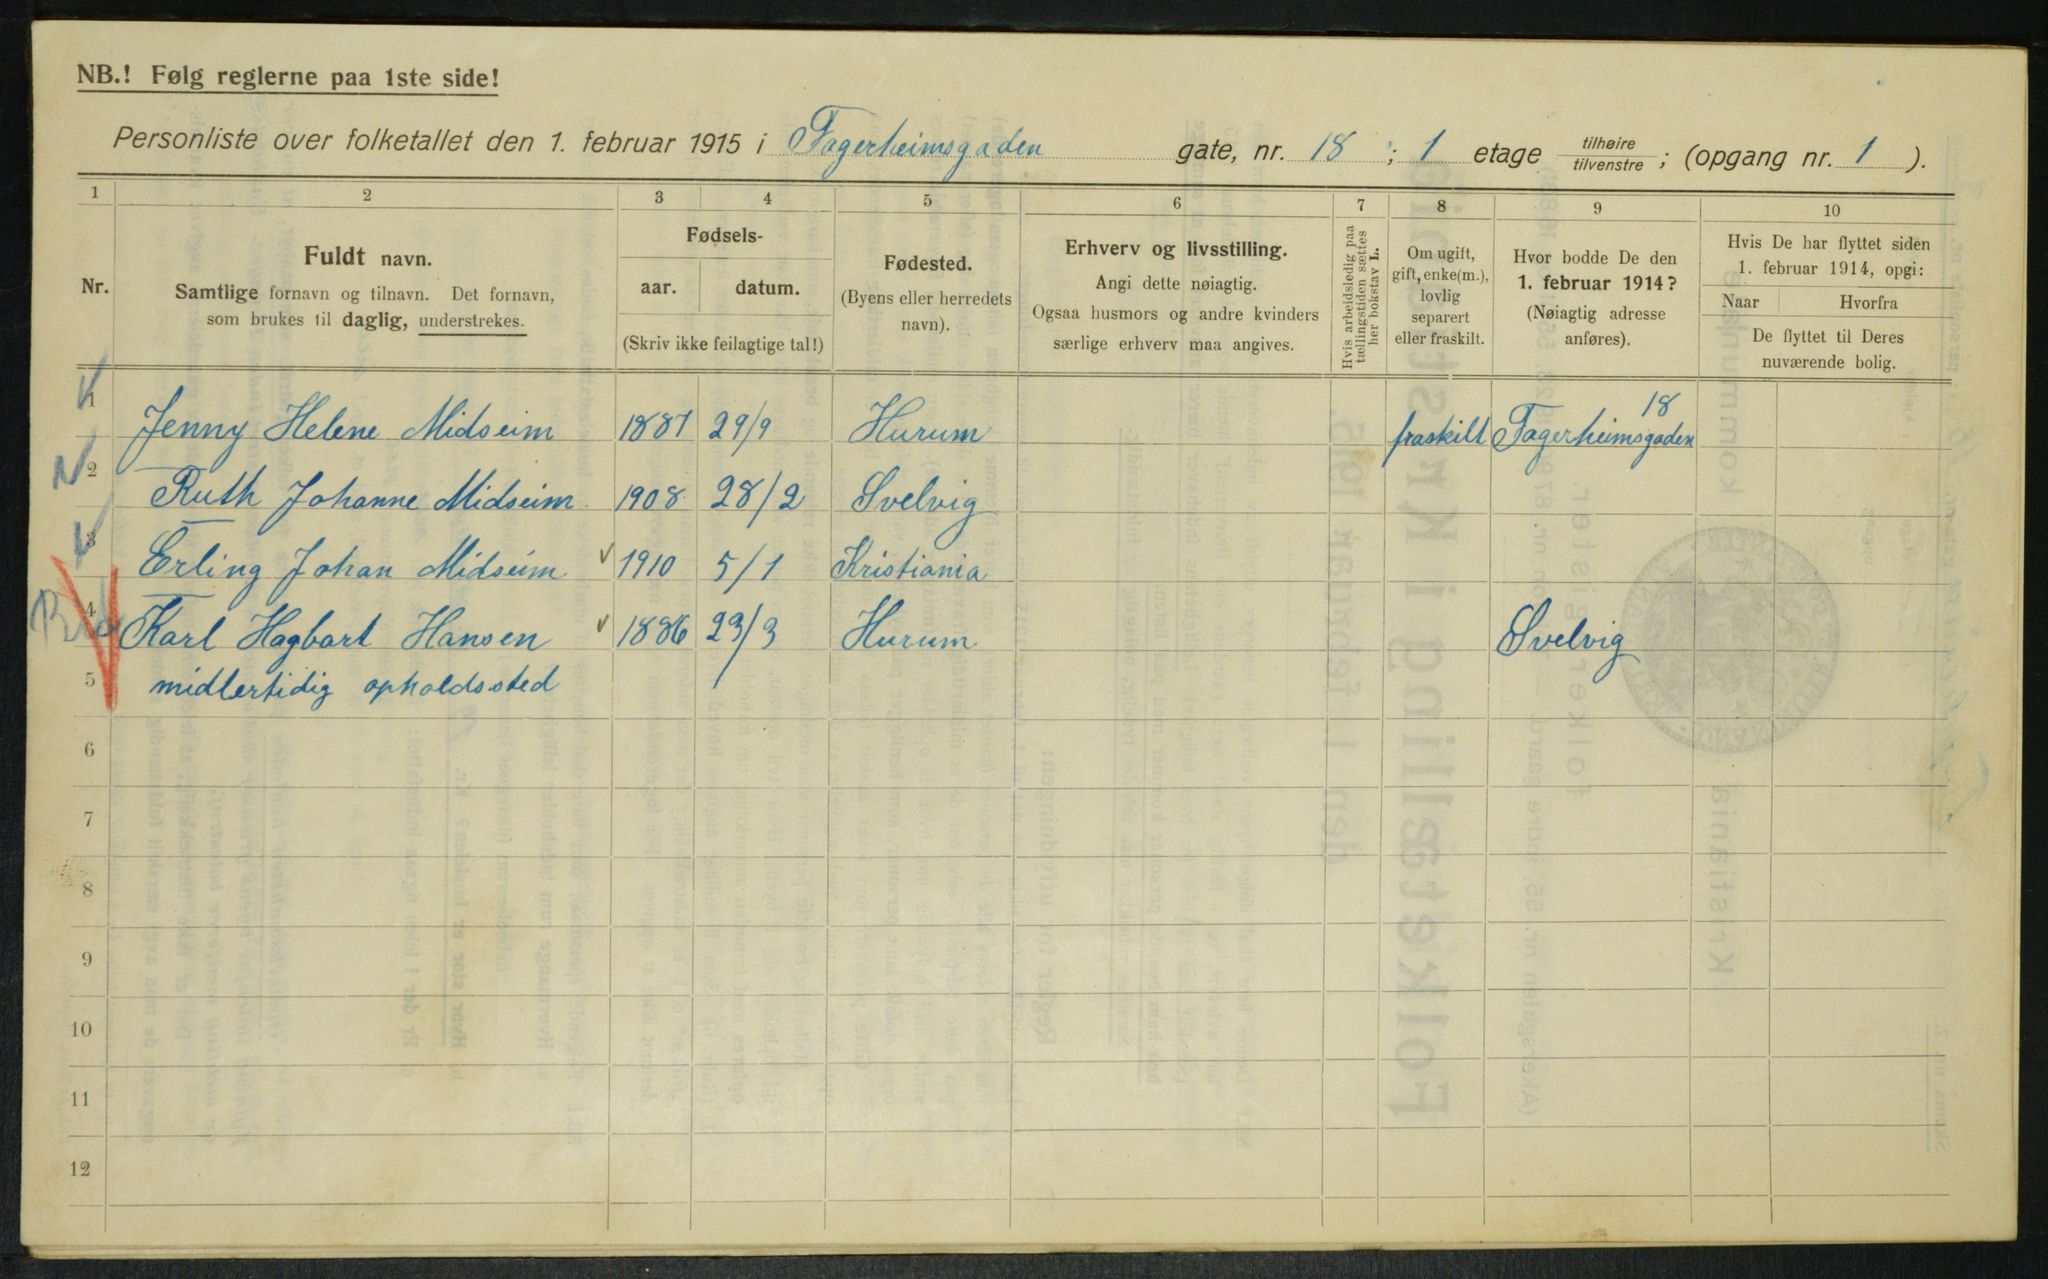 NB.! Følg reglerne paa 1ste side!
Personliste over folketallet den 1. februar 1915 i Fagerheimsgaden gate, nr. 18 ; 1 etage tilhøire tilvenstre ; (opgang nr. 1 ).
1 2 3 4 5 6 7 8 9 10
Nr.
Fuldt navn.
Samtlige fornavn og tilnavn. Det fornavn,
som brukes til daglig, understrekes.
Fødsels-
aar. datum.
(Skriv ikke feilagtige tal!)
Fødested.
(Byens eller herredets
navn).
Erhverv og livsstilling.
Angi dette nøiagtig.
Ogsaa husmors og andre kvinders
særlige erhverv maa angives.
Hvis arbeidsledig paa
tællingstiden sættes
her bokstav L.
Om ugift,
gift, enke(m.),
lovlig
separert
eller fraskilt.
Hvor bodde De den
1. februar 1914?
(Nøiagtig adresse
anføres).
Hvis De har flyttet siden
1. februar 1914, opgi:
Naar Hvorfra
De flyttet til Deres
nuværende bolig.
1 Jenny Helene Midseim 1887 29/9 Hurum fraskilt Fagerheimsgaden 18
2 Ruth Johanne Midseim 1908 28/2 Svelvig
3 Erling Johan Midseim 1910 5/1 Kristiania
4 Karl Hagbart Hansen 1886 23/3 Hurum Svelvig
5 midlertidig opholdssted
6
7
8
9
10
11
12